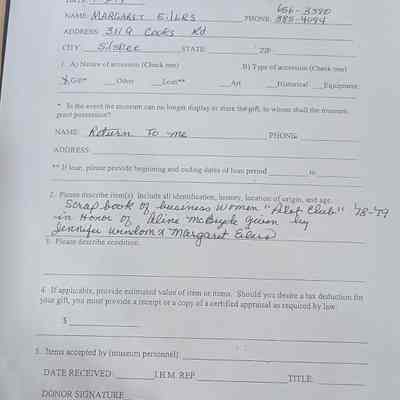 DATE:
656-3590
NAME: MARGARET EILERS PHONE: 385-4094
ADDRESS: 3119 Cooks Rd
CITY Silsbee STATE: ZIP
1. A) Nature of accession (Check one) B) Type of accession (Check one)
X Gift* Other Loan** Art Historical Equipment
* In the event the museum can no longer display or store the gift, to whom shall the museum
grant possession?
NAME: Return To me PHONE:
ADDRESS:
** If loan, please provide beginning and ending dates of loan period to
2. Please describe item(s). Include all identification, history, location of origin, and age.
Scrapbook of business Women "Pilot Club" '78-'79
in Honor of Aline McBryde given by
Jennifer Windom & Margaret Eilers
3. Please describe condition.
4. If applicable, provide estimated value of item or items. Should you desire a tax deduction for
your gift, you must provide a receipt or a copy of a certified appraisal as required by law.
$
5. Items accepted by (museum personnel):
DATE RECEIVED: I.H.M. REP TITLE:
DONOR SIGNATURE